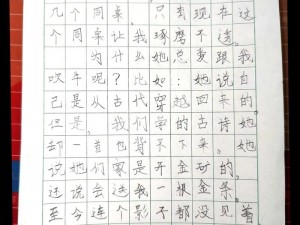 几个同桌，只有现在这
个同桌让我琢磨不透。
为什么她总爱跟我
吹牛呢？比如：她说自
己是从古代穿越回来的，
但是，我们学的古诗她
却一首也背不下来。她
说她们家是开金矿的，
还说会送我一根金条，
至今连个影子都没见着